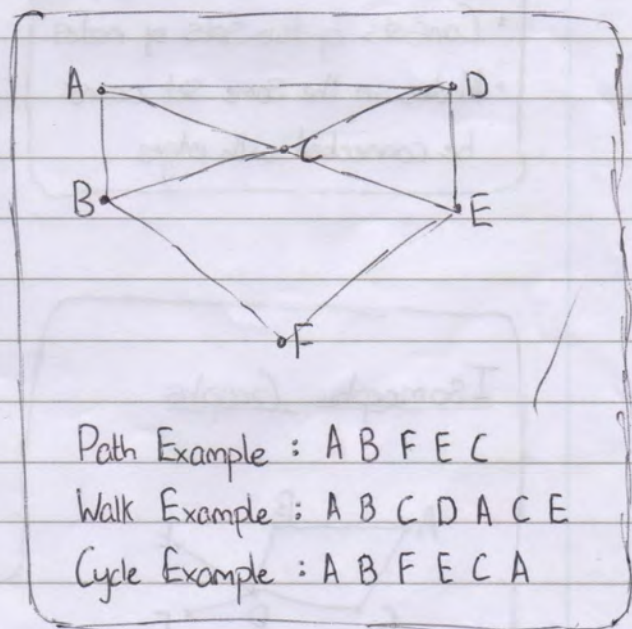 A D
C
B E
F
Path Example : A B F E C
Walk Example : A B C D A C E
Cycle Example : A B F E C A